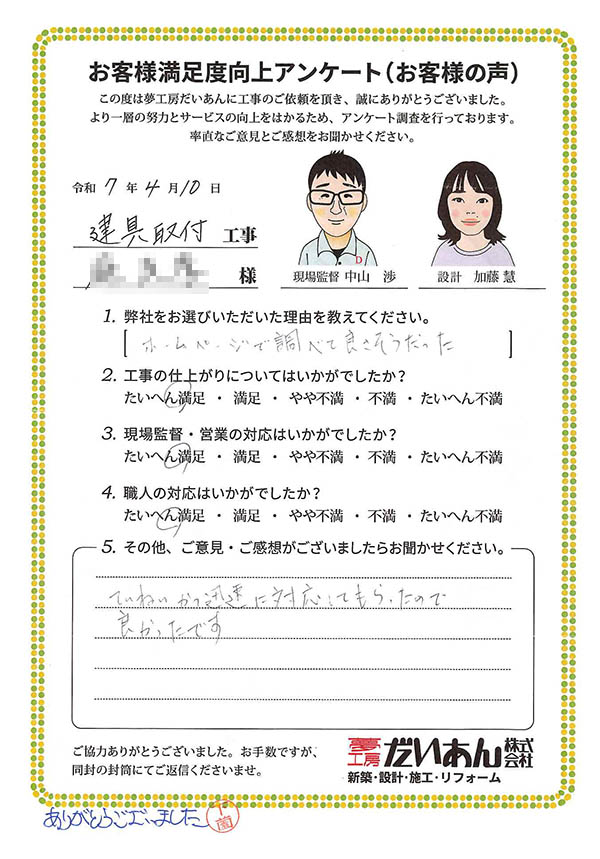 お客様満足度向上アンケート（お客様の声）
この度は夢工房だいあんに工事のご依頼を頂き、誠にありがとうございました。
より一層の努力とサービスの向上をはかるため、アンケート調査を行っております。
率直なご意見とご感想をお聞かせください。
令和 7 年 4 月 10 日
建具取付 工事
様
現場監督 中山 渉
設計 加藤 慧
D
1. 弊社をお選びいただいた理由を教えてください。
ホームページで調べて良さそうだった
2. 工事の仕上がりについてはいかがでしたか？
たいへん満足 ・ 満足 ・ やや不満 ・ 不満 ・ たいへん不満
3. 現場監督・営業の対応はいかがでしたか？
たいへん満足 ・ 満足 ・ やや不満 ・ 不満 ・ たいへん不満
4. 職人の対応はいかがでしたか？
たいへん満足 ・ 満足 ・ やや不満 ・ 不満 ・ たいへん不満
5. その他、ご意見・ご感想がございましたらお聞かせください。
ていねいかつ迅速に対応してもらったので
良かったです
ご協力ありがとうございました。お手数ですが、
同封の封筒にてご返信くださいませ。
夢工房 だいあん 株式会社
新築・設計・施工・リフォーム
ありがとうございました